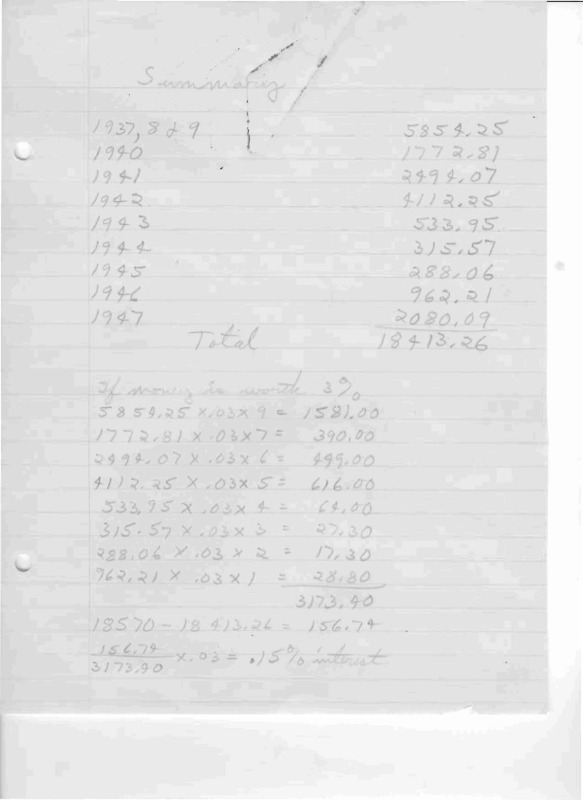 Summary
1937, 8 & 9 5854.25
1940 1772.81
1941 2494.07
1942 4112.25
1943 533.95
1944 315.57
1945 288.06
1946 962.21
1947 2080.09
Total 18413.26
If money is worth 3%
5854.25 x .03 x 9 = 1581.00
1772.81 x .03 x 7 = 390.00
2494.07 x .03 x 6 = 449.00
4112.25 x .03 x 5 = 616.00
533.95 x .03 x 4 = 64.00
315.57 x .03 x 3 = 27.30
288.06 x .03 x 2 = 17.30
962.21 x .03 x 1 = 28.80
3173.40
18570 - 18413.26 = 156.74
156.74
3173.40 x .03 = .15% interest